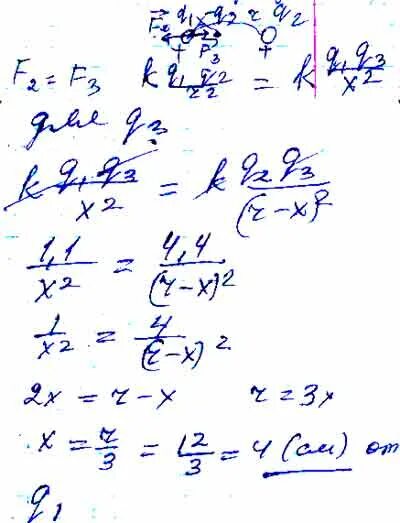 F₂ q₁ x -q₃ r q₂
+ F₃ +
F₂ = F₃ k q₁ q₂ / r² = k q₁ q₃ / x²
для q₃
k q₁ q₃ / x² = k q₂ q₃ / (r-x)²
1,1 / x² = 4,4 / (r-x)²
1 / x² = 4 / (r-x)²
2x = r - x r = 3x
x = r / 3 = 12 / 3 = 4 (см) от
q₁